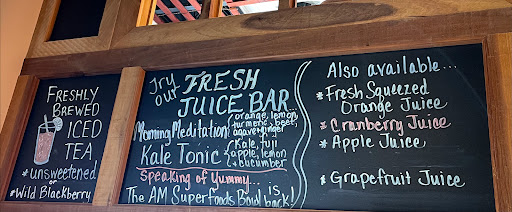 FRESHLY
BREWED
ICED
TEA
*unsweetened
or
*Wild Blackberry
Try
out
FRESH
JUICE BAR...
Morning Meditation: orange, lemon,
turmeric, beet,
agave+ginger
Kale Tonic Kale, fuji
apple, lemon
+ cucumber
Speaking of Yummy...
The AM Superfoods Bowl is
back!
Also available...
*Fresh Squeezed
Orange Juice
*Cranberry Juice
*Apple Juice
*Grapefruit Juice